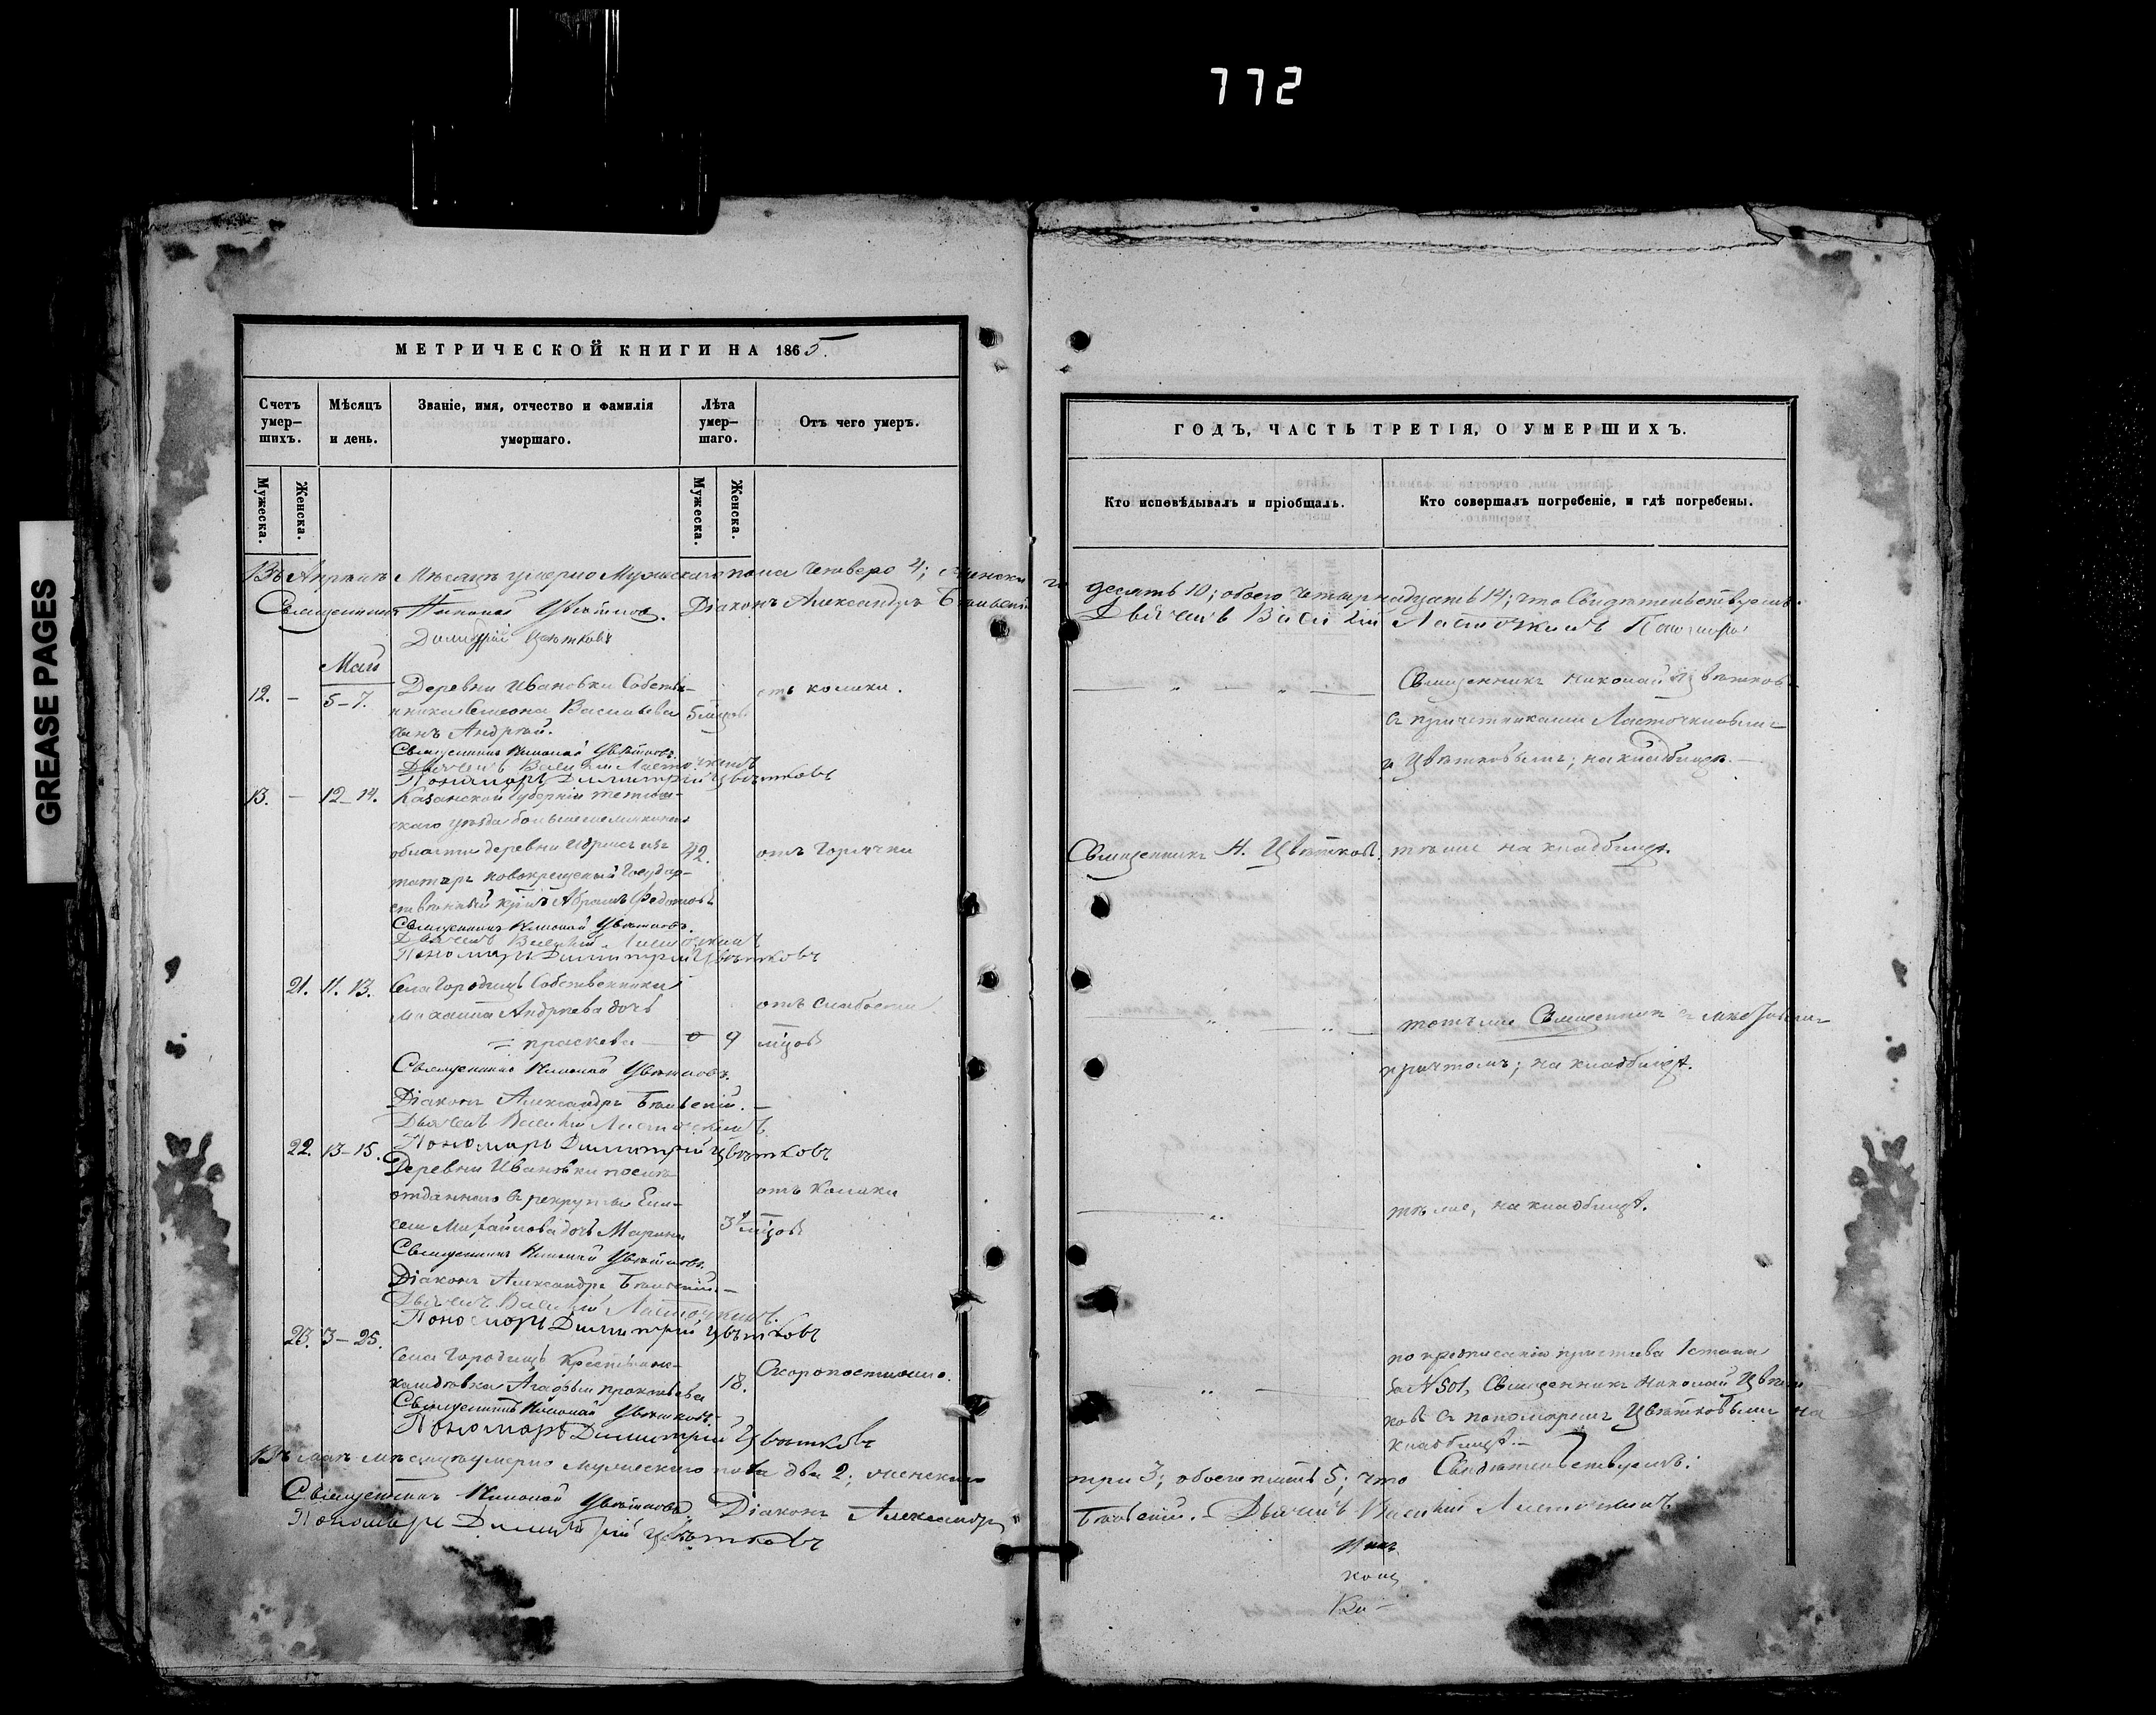 772
GREASE PAGES
МЕТРИЧЕСКОЙ КНИГИ НА 1865.
Счетъ умер-шихъ.
Мѣсяцъ и день.
Званіе, имя, отчество и фамилія умершаго.
Лѣта умер-шаго.
Отъ чего умеръ.
Мужеска.
Женска.
Мужеска.
Женска.
Въ Апрѣлѣ Мѣсяцѣ умерло Мужескаго пола четверо 4; женска
Священникъ Николай Цвѣтковъ. Діаконъ Александръ
Димитрій Цвѣтковъ
Май
12. – 5–7. Деревни Ивановки Собстве- отъ колики.
нника Семена Васильева 5 мцов
сынъ Андрей.
Священникъ Николай Цвѣтковъ.
Дьячекъ Василій Ласточкинъ
Пономарь Димитрій Цвѣтковъ
13. – 12–14. Казанской Губерніи
скаго уѣзда
области деревни изъ 42. отъ Горячки
татаръ новокрещеный Государ-
ственный Абрамъ Федотовъ
Священникъ Николай Цвѣтковъ.
Дьячекъ Василій Ласточкинъ
Пономарь Димитрій Цвѣтковъ
21. 11. 13. Села Городищъ Собственника
Михаила Андреева дочь отъ слабости
= праскева – 9 мцовъ
Священникъ Николай Цвѣтковъ.
Діаконъ Александръ
Дьячекъ Василій Ласточкинъ
22. 13–15. Пономарь Димитрій Цвѣтковъ
Деревни Ивановки
отданнаго въ рекруты Ели- отъ Колики
сея Михайлова дочь Марина 3 мцовъ
Священникъ Николай Цвѣтковъ.
Діаконъ Александръ
Дьячекъ Василій Ласточкинъ.
Пономарь Димитрій Цвѣтковъ
23. 3–25.
Села Городищъ Крестьянс- Скоропостижно.
кая дѣвка Агафья 18.
Священникъ Николай Цвѣтковъ.
Пономарь Димитрій Цвѣтковъ
Въ маѣ мѣсяцѣ умерло мужескаго пола два 2; женскаго
Священникъ Николай Цвѣтковъ Діаконъ Александръ
Пономарь Димитрій Цвѣтковъ
ГОДЪ, ЧАСТЬ ТРЕТІЯ, О УМЕРШИХЪ.
Кто исповѣдывалъ и пріобщалъ.
Кто совершалъ погребеніе, и гдѣ погребены.
го десять 10; обоего четырнадцать 14; что Свидѣтельствуемъ.
Дьячекъ Василій Ласточкинъ Пономарь
Священникъ Николай Цвѣтковъ
съ причетниками Ласточкинымъ
и Цвѣтковымъ; на кладбищѣ.
Священникъ Н. Цвѣтковъ. тѣже на кладбищѣ.
тотъ же Священникъ съ
причтомъ; на кладбищѣ.
тѣ же, на кладбищѣ.
по предписанію пристава 1 стана
за № 501, Священникъ Николай Цвѣт
ковъ съ пономаремъ Цвѣтковымъ на
кладбищѣ.
три 3; обоего пять 5; что Свидѣтельствуемъ:
Дьячекъ Василій Ласточкинъ